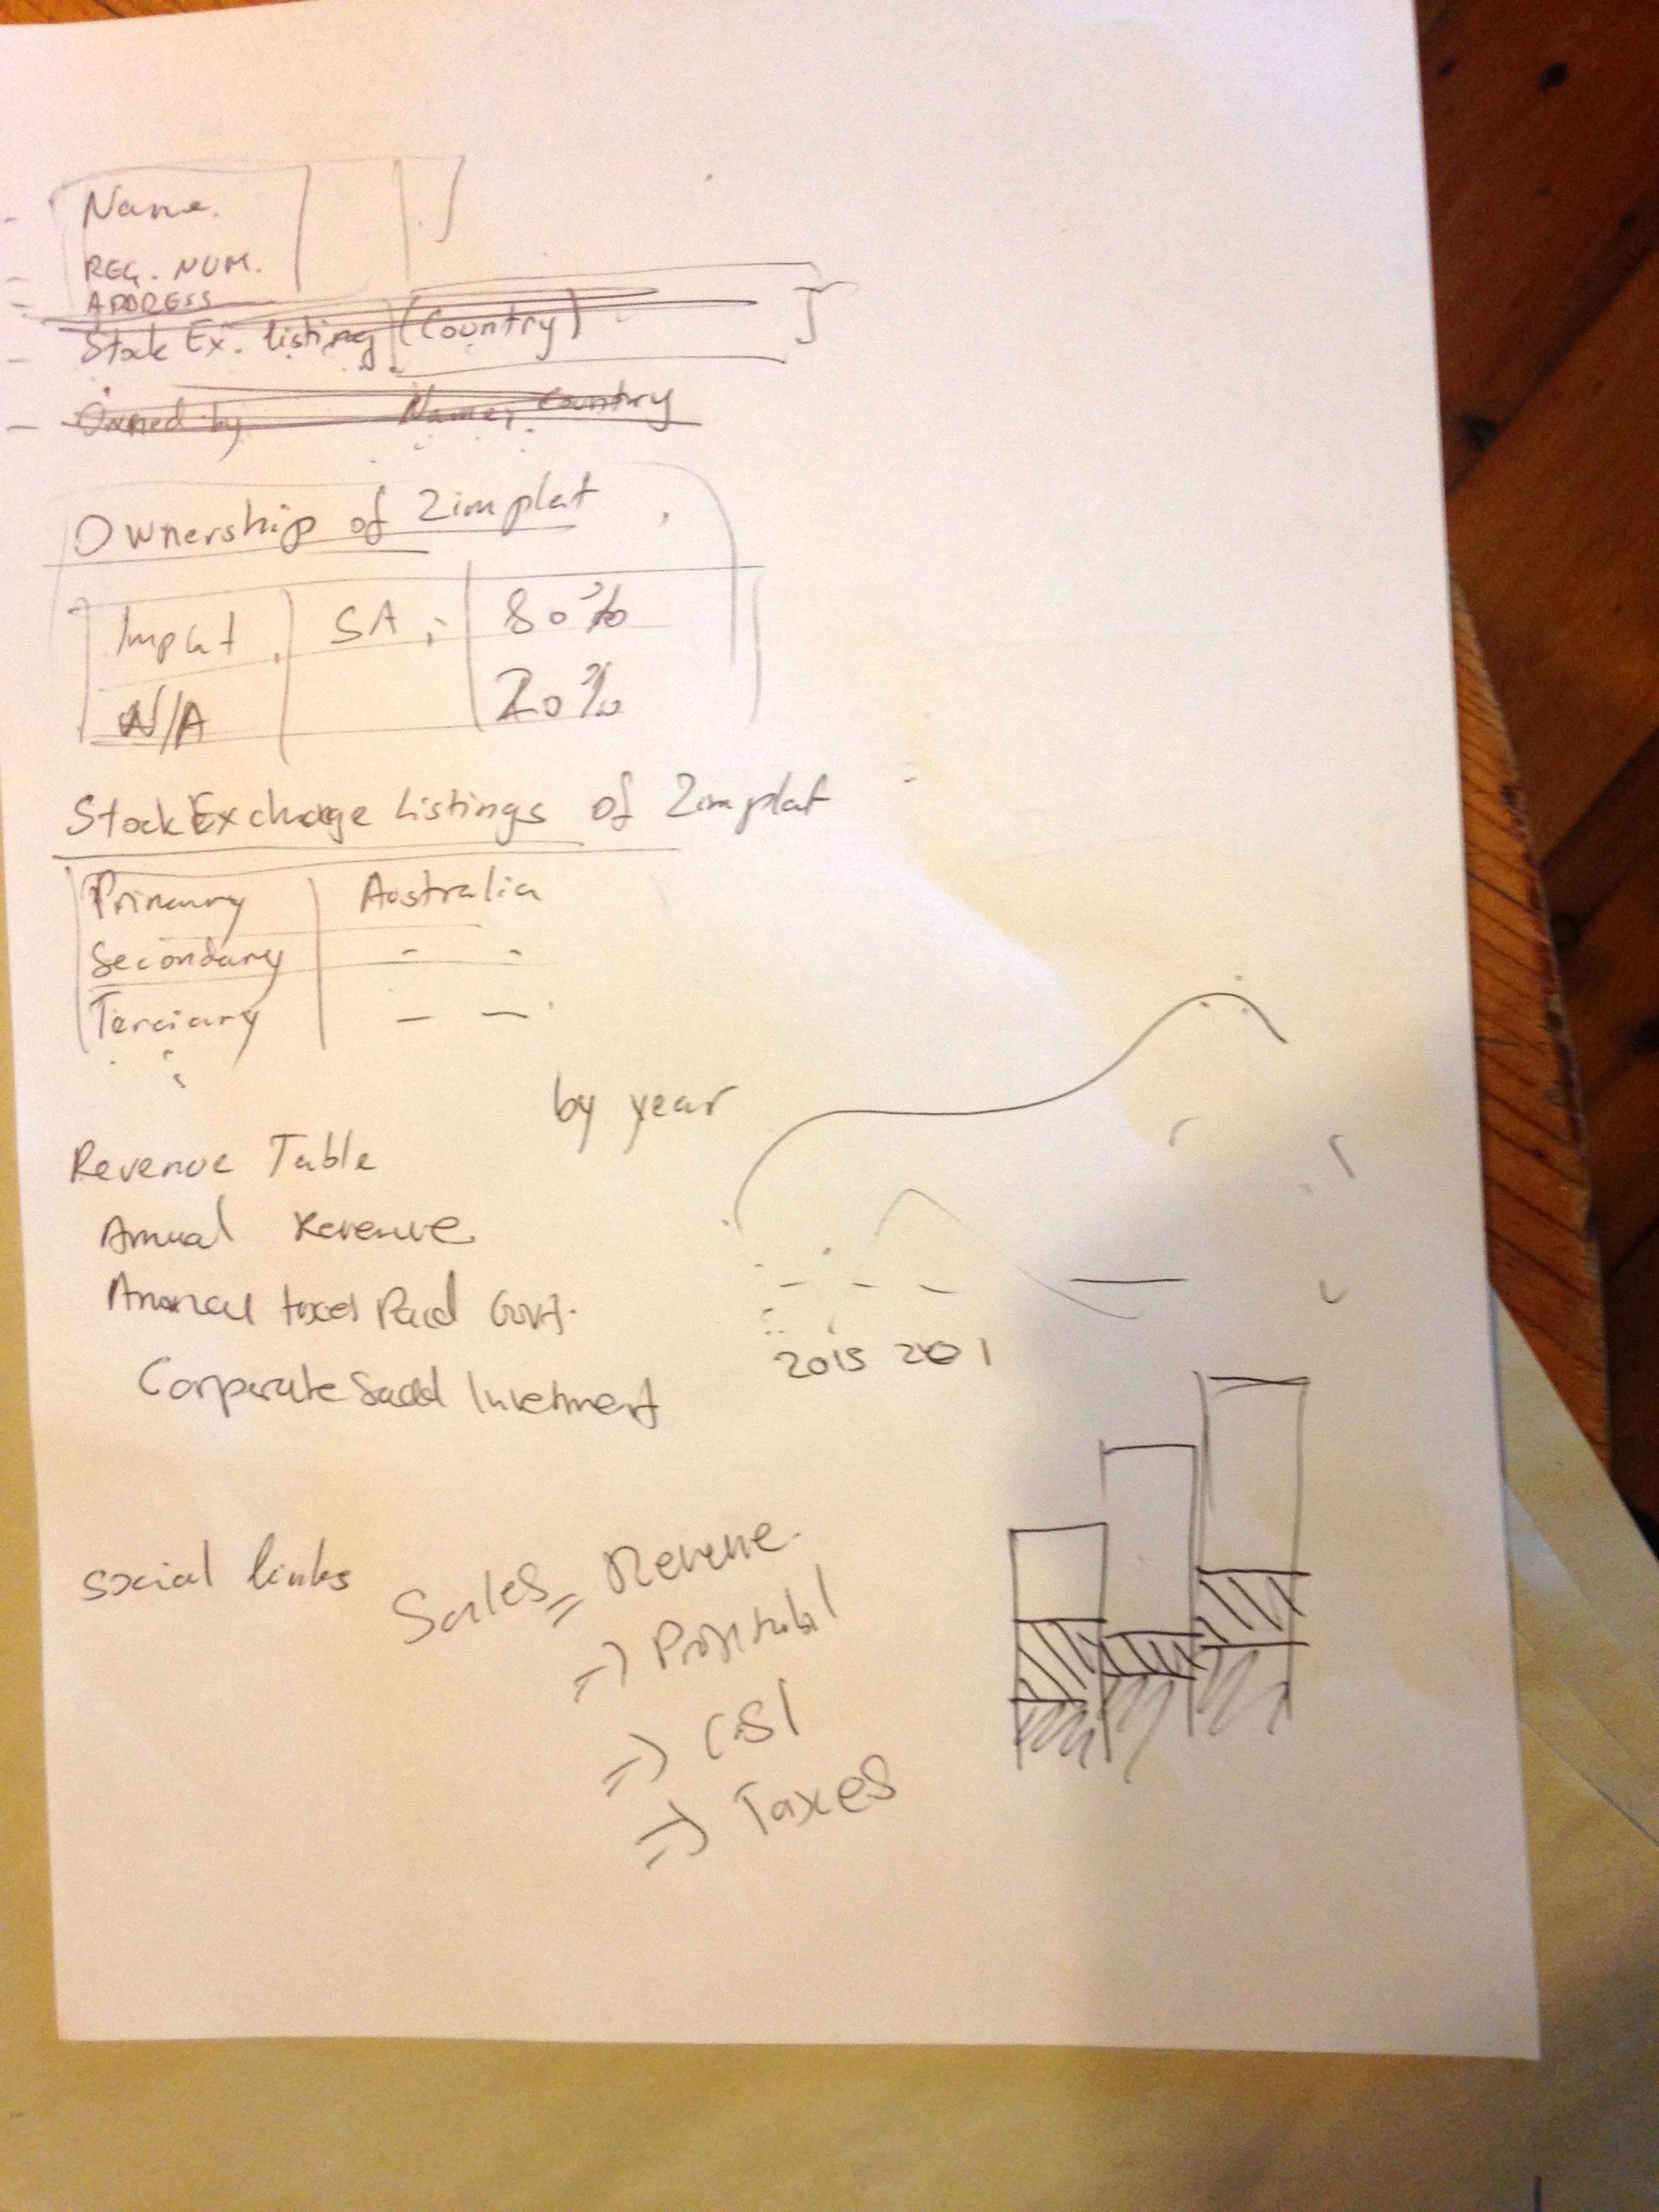 Name.
REG. NUM.
ADDRESS
Stock Ex. listing (Country)
Owned by Name, Country
Ownership of Zimplat
Implat SA, 80%
N/A 20%
Stock Exchange Listings of Zimplat
Primary Australia
Secondary - -
Terciary - -
by year
Revenue Table
Annual Revenue
Annual taxes Paid Govt.
2015 201
Corporate Social Investment
social links
Sales = Revenue.
=>
=> CSI
=> Taxes